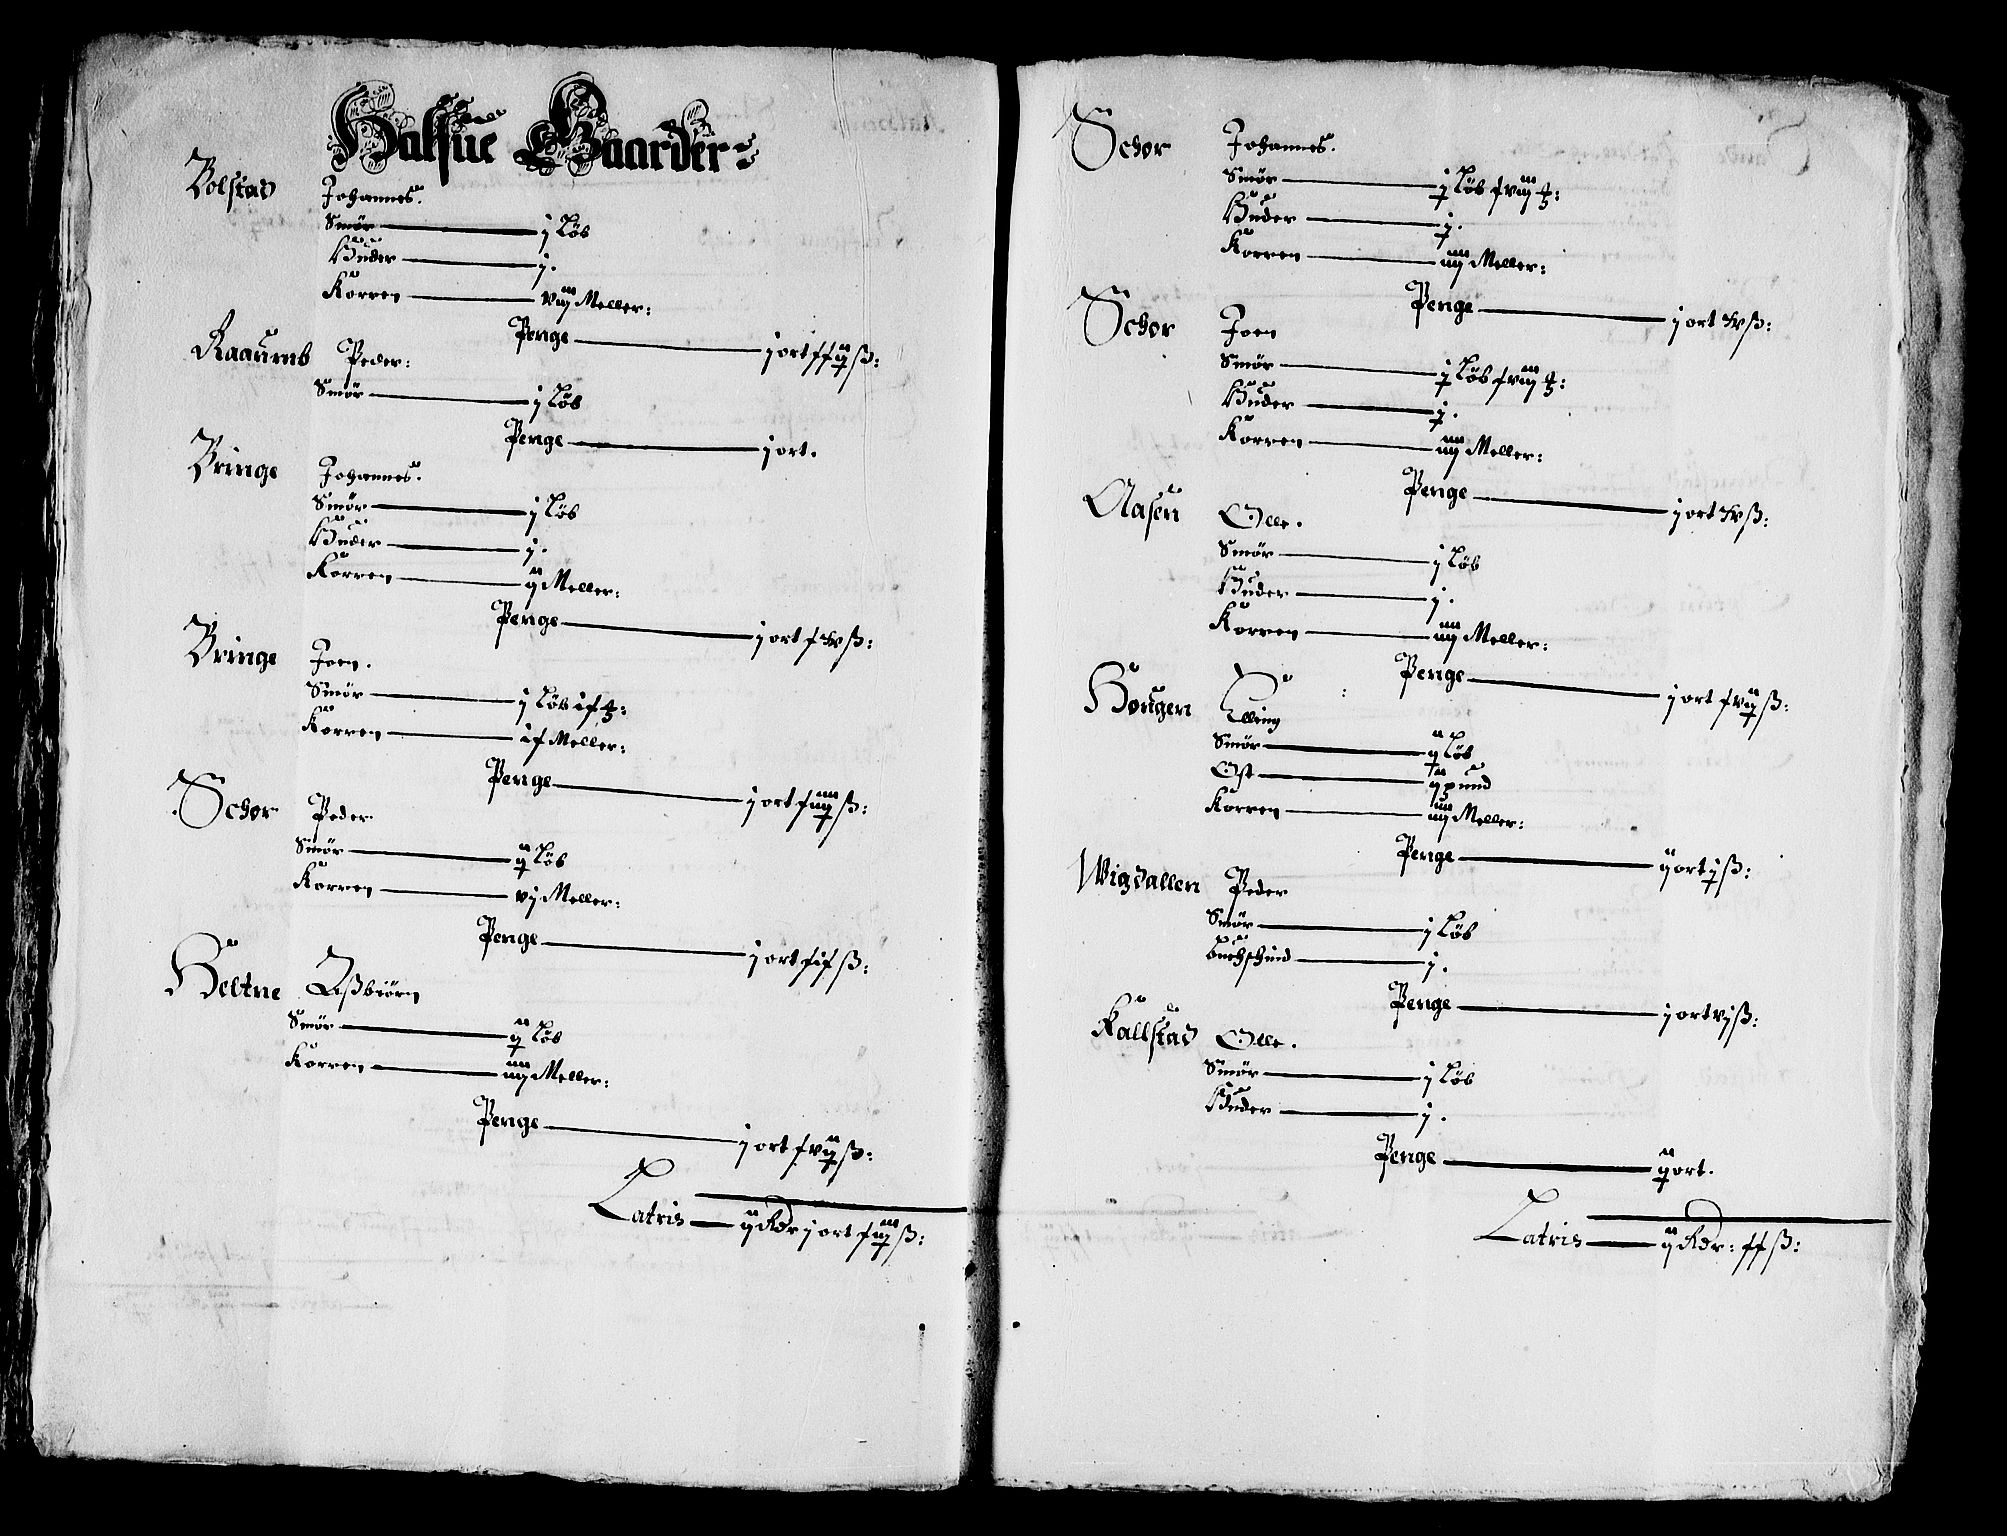 Halfue Gaarder:
Bolstad Johannes.
Smør — j Løb
Huder — j.
Korren — viij Meller:
Penge — j ort
Raaurnb Peder:
Smør — j Løb
Penge — j ort.
Bringe Johannes.
Smør — j Løb
Huder — j.
Korren — ij Meller:
Penge — j ort
Bringe Joen.
Smør — j Løb
Korren — Meller:
Penge — j ort
Schor Peder
Smør — Løb
Korren — vj Meller:
Penge — j ort
Heltne Aßbiørn
Smør — Løb
Korren — iiij Meller:
Penge — j ort
Latris — ij Rdr j ort
Schor Johannes.
Smør — Løb
Huder —
Korren — iiij Meller:
Penge — j ort
Schor Joen
Smør — Løb
Huder —
Korren — iiij Meller:
Penge — j ort
Aasen Olle.
Smør — j Løb
Huder — j.
Korren — iiij Meller:
Penge — j ort
Hougen Elling
Smør — Løb
Ost — pund
Korren — iiij Meller:
Penge — ij ort
Wigdallen Peder
Smør — j Løb
Buchschind — j.
Penge — j ort vj ß:
Kallstad Olle.
Smør — j Løb
Huder — j.
Penge — ort.
Latris — ij Rdr: